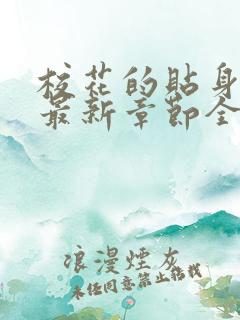 校花的貼身
最新章節全
浪漫煙灰
未经同意禁止转载